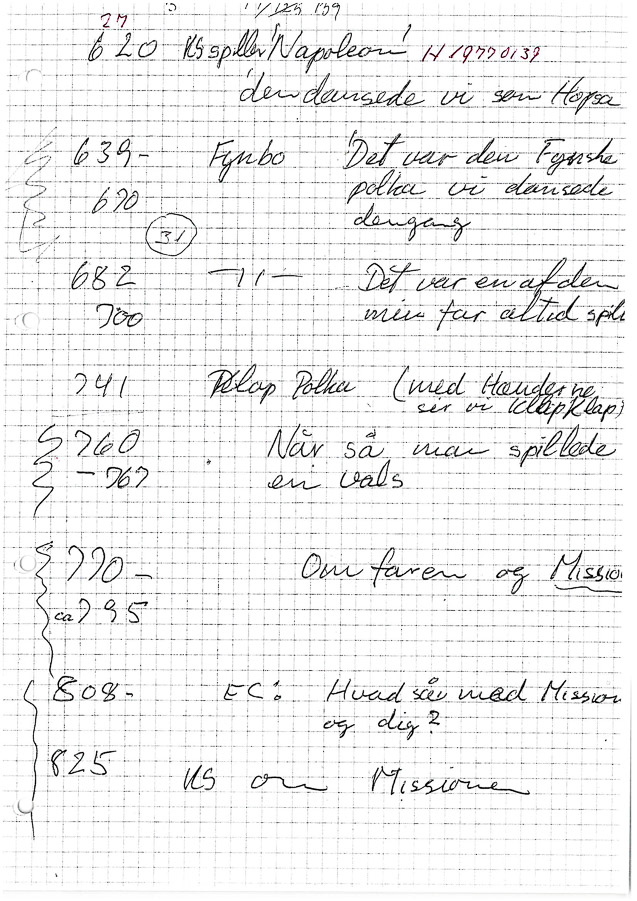 27
620 KS spiller 'Napoleon' H 19770139
'den dansede vi som Hopsa
639- Fynbo 'Det var den Fynske
670 polka vi dansede
dengang
31
682 —11— Det var en af dem
700 min far altid spil
741 Klap Polka (med Hænderne
sir vi Klap Klap)
760 Når så man spillede
-767 en vals
770- Om faren og Missio
ca 795
808- EC: Hvad så med Mission
og dig?
825 KS om Missionen